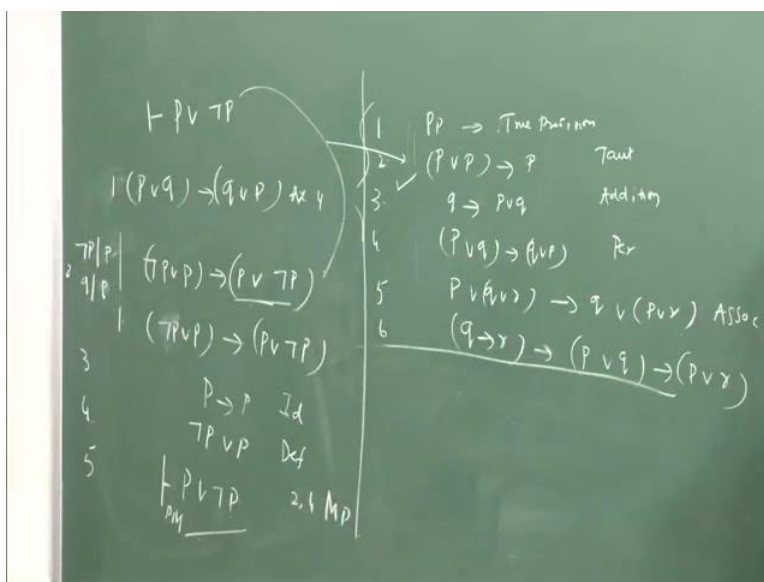 ⊢ P ∨ ¬P
1 (P ∨ q) → (q ∨ P) Ax 4
2 ¬P/P q/P (¬P ∨ P) → (P ∨ ¬P)
(¬P ∨ P) → (P ∨ ¬P)
3 P → P Id
4 ¬P ∨ P Def
5 ⊢PM P ∨ ¬P 2,4 MP
1 Pp → True
2 (P ∨ P) → P Taut
3. q → P ∨ q Addition
4 (P ∨ q) → (q ∨ P) Per
5 P ∨ (q ∨ r) → q ∨ (P ∨ r) Assoc
6 (q → r) → (P ∨ q) → (P ∨ r)